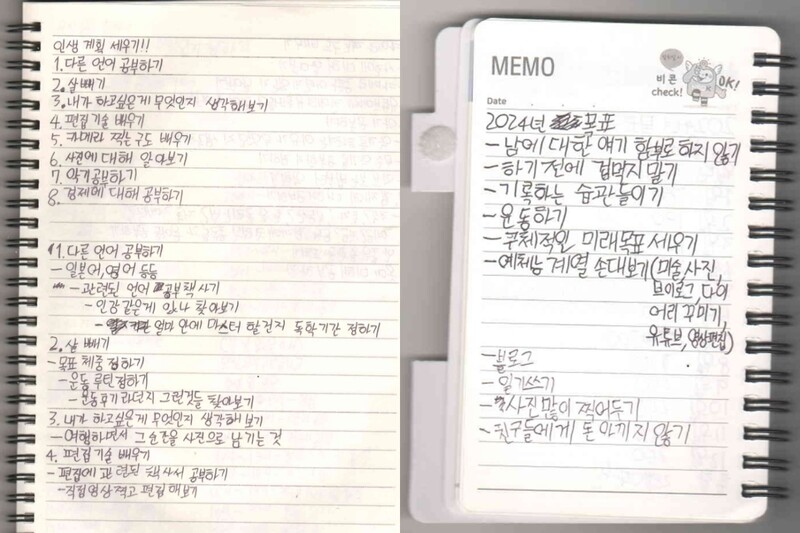 인생 계획 세우기!!
1. 다른 언어 공부하기
2. 살 빼기
3. 내가 하고싶은게 무엇인지 생각해보기
4. 편집 기술 배우기
5. 카메라 찍는 구도 배우기
6. 사진에 대해 알아보기
7. 악기공부하기
8. 경제에 대해 공부하기
1. 다른 언어 공부하기
- 일본어, 영어 등등
- 관련된 언어 공부 책 사기
- 인강같은게 있나 찾아보기
- 얼마 안에 마스터 할건지 독학기간 정하기
2. 살 빼기
- 목표 체중 정하기
- 운동 루틴 정하기
- 운동 기구라던지 그런것들 찾아보기
3. 내가 하고싶은게 무엇인지 생각해 보기
- 여행하면서 그 순간을 사진으로 남기는 것
4. 편집 기술 배우기
- 편집에 관련된 책 사서 공부하기
- 직접 영상 찍고 편집해보기
MEMO
비콘
check!
OK!
Date
2024년 목표
- 남에 대한 얘기 함부로 하지 않기
- 하기 전에 겁먹지 말기
- 기록하는 습관들이기
- 운동하기
- 구체적인 미래목표 세우기
- 예체능 계열 손대보기(미술, 사진,
브이로그, 다이
어리 꾸미기,
유튜브, 영상편집)
- 블로그
- 일기쓰기
- 사진 많이 찍어두기
- 친구들에게 돈 아끼지 않기